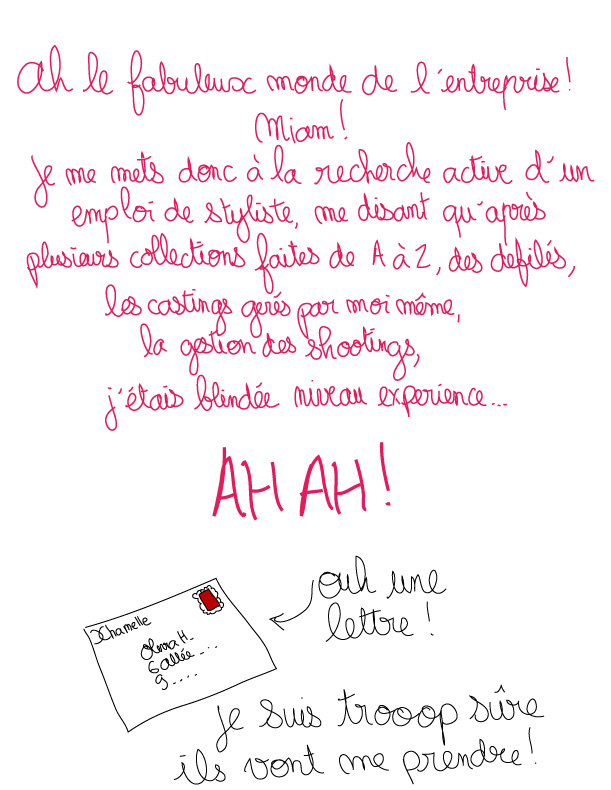 Ah le fabuleux monde de l'entreprise!
Miam!
Je me mets donc à la recherche active d'un
emploi de styliste, me disant qu'après
plusieurs collections faites de A à Z, des defilés,
les castings gerés par moi même,
la gestion des shootings,
j'étais blindée niveau experience...
AH AH!
ouh une
lettre!
Chamelle
Olivia H.
6 allée....
9....
je suis trooop sûre
ils vont me prendre!